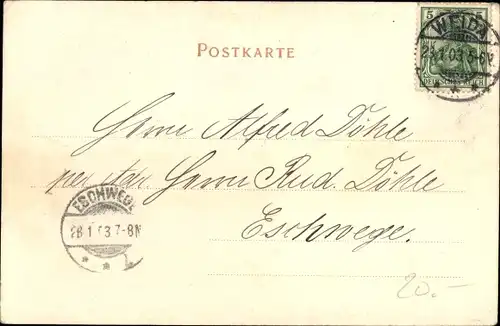 5 5
WEIDA
1 03 5-6N
DEUTSCHES REICH
POSTKARTE
Herrn Alfred Döhle
per adr. Herrn Rud. Döhle
Eschwege.
ESCHWEGE
28 1 03 7-8N
20.-